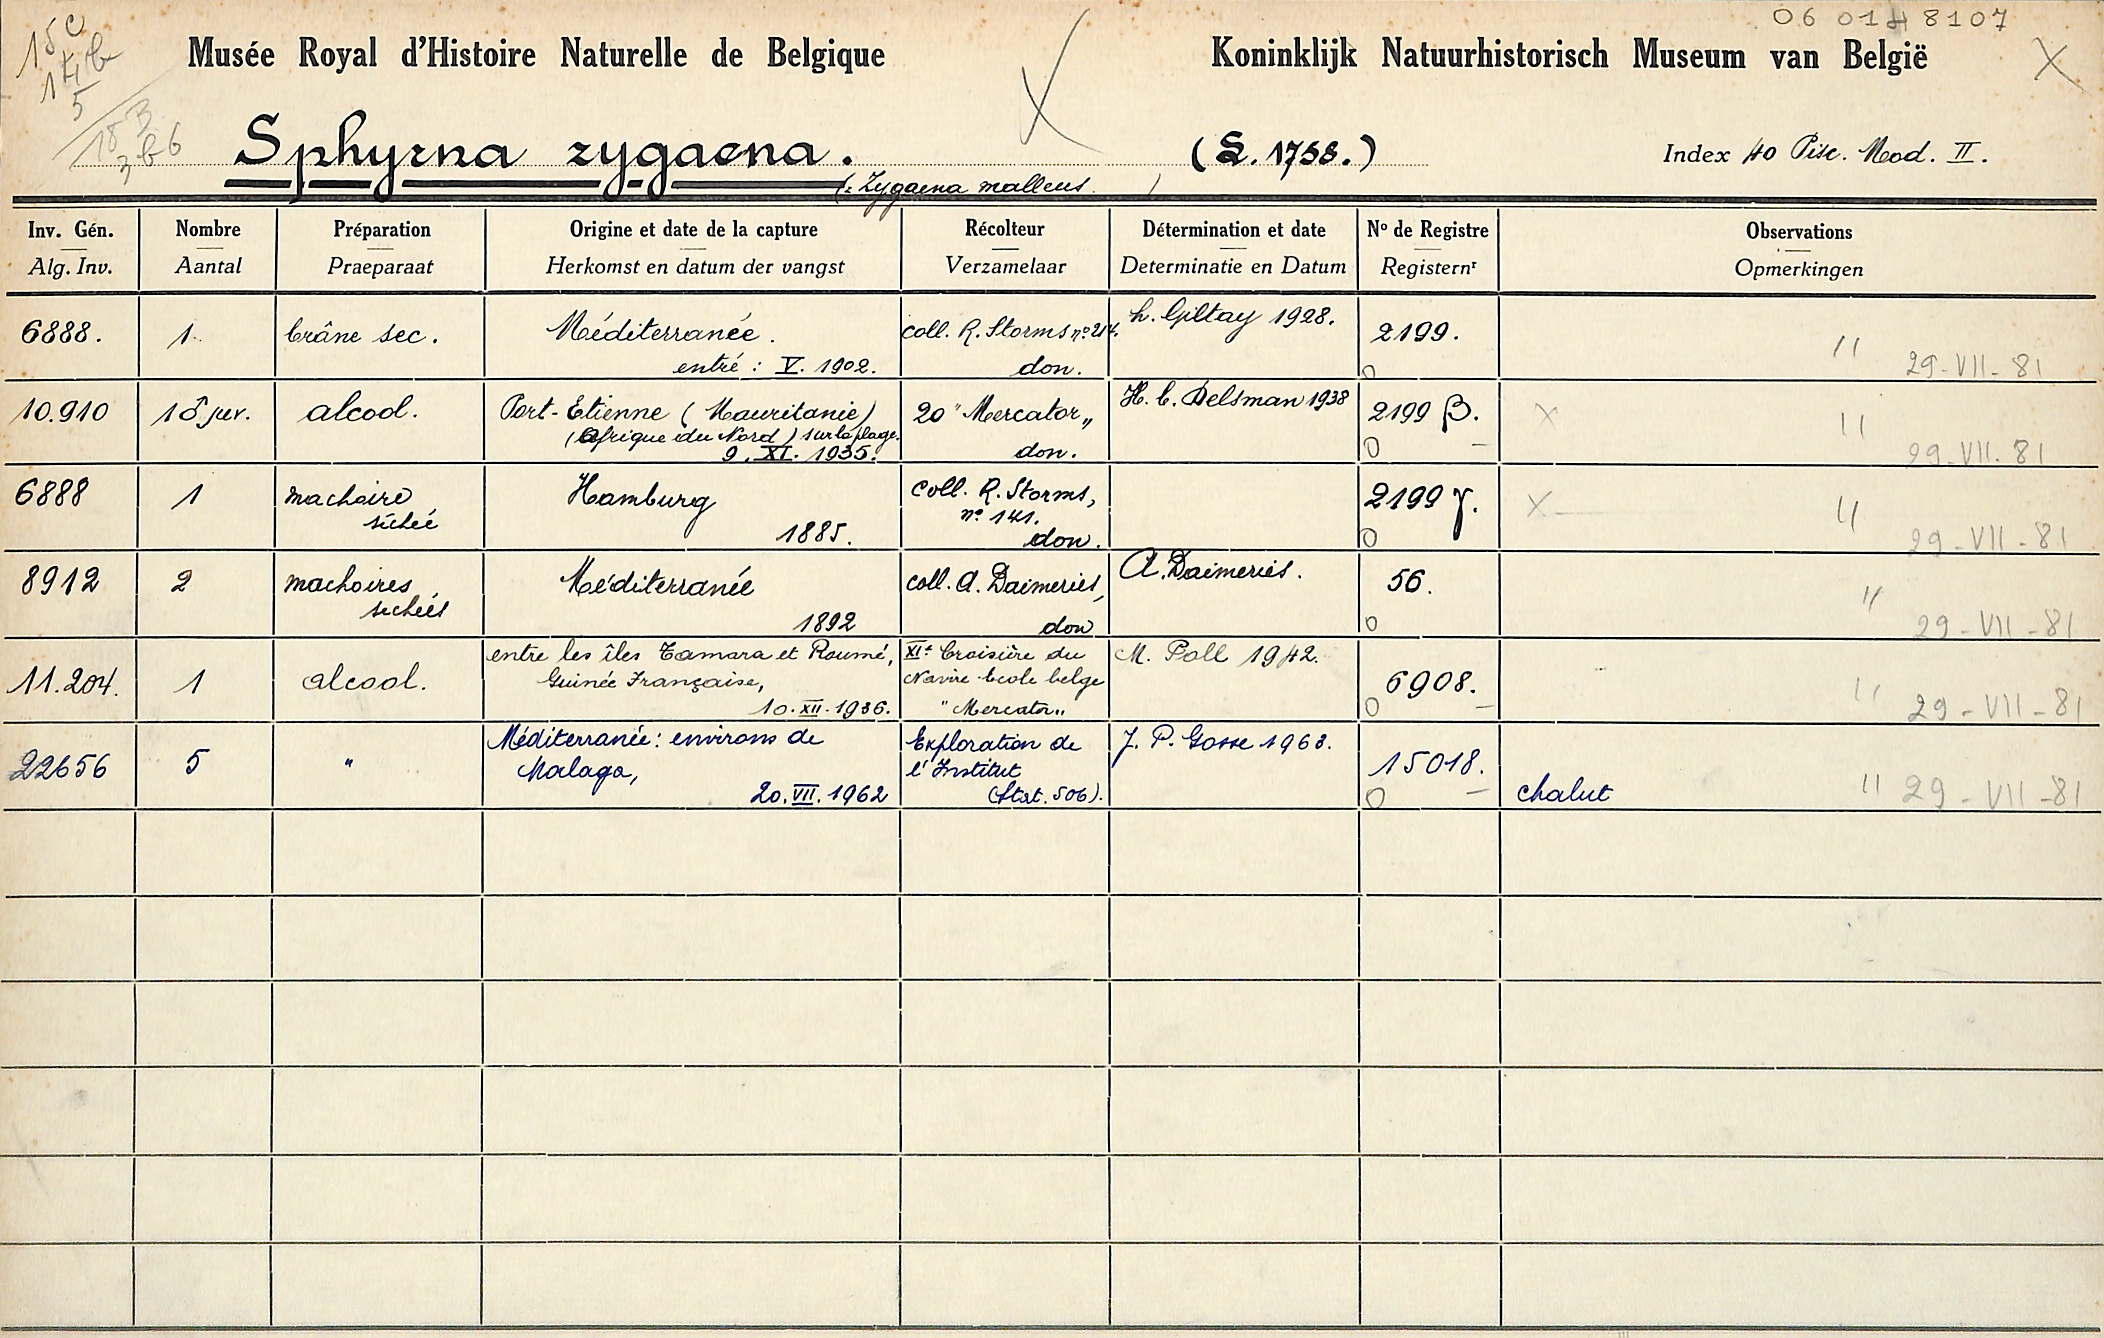 15C
06 01 H 8107
Musée Royal d'Histoire Naturelle de Belgique
Koninklijk Natuurhistorisch Museum van België
5
18 B
3 b 6
Sphyrna zygaena.
(L. 1758.)
Index 40 Pisc. Mod. II.
(= Zygaena malleus. )
Inv. Gén. Nombre Préparation Origine et date de la capture Récolteur Détermination et date No de Registre Observations
Alg. Inv. Aantal Praeparaat Herkomst en datum der vangst Verzamelaar Determinatie en Datum Registernr Opmerkingen
6888. 1 Crâne sec. Méditerranée. coll. R. Storms no 214. L. Giltay 1928. 2199. "
entré : V. 1902. don. 0 29-VII-81
10.910 1 ♂ juv. alcool. Port-Etienne (Mauritanie) 20 "Mercator" H. C. Delsman 1938 2199 β. X "
(Afrique du Nord) sur la plage.
9. XI. 1935. don. 0 29-VII-81
6888 1 machoire Hamburg Coll. R. Storms, 2199 γ. X "
séchée no 141.
1885. don. 0 29-VII-81
8912 2 machoires Méditerranée coll. A. Daimeries, A. Daimeries. 56. "
séchées 1892 don 0 29-VII-81
entre les îles Tamara et Roumé, XIe Croisière du M. Poll 1942.
11.204. 1 alcool. Guinée Française, Navire-Ecole belge 6908. "
10.XII.1936. "Mercator" 0 29-VII-81
Méditerranée: environs de Exploration de J. P. Gosse 1963.
22656 5 " Malaga, l'Institut 15018.
20.VII.1962 (Stat. 506). 0 chalut " 29-VII-81